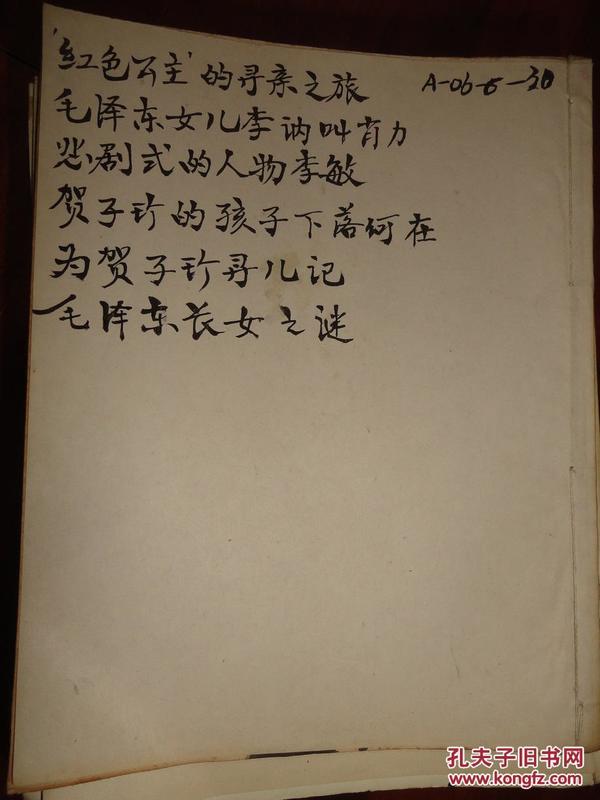 '红色公主'的寻亲之旅
A-06-6-30
毛泽东女儿李讷叫肖力
悲剧式的人物李敏
贺子珍的孩子下落何在
为贺子珍寻儿记
毛泽东长女之谜
孔夫子旧书网
www.kongfz.com